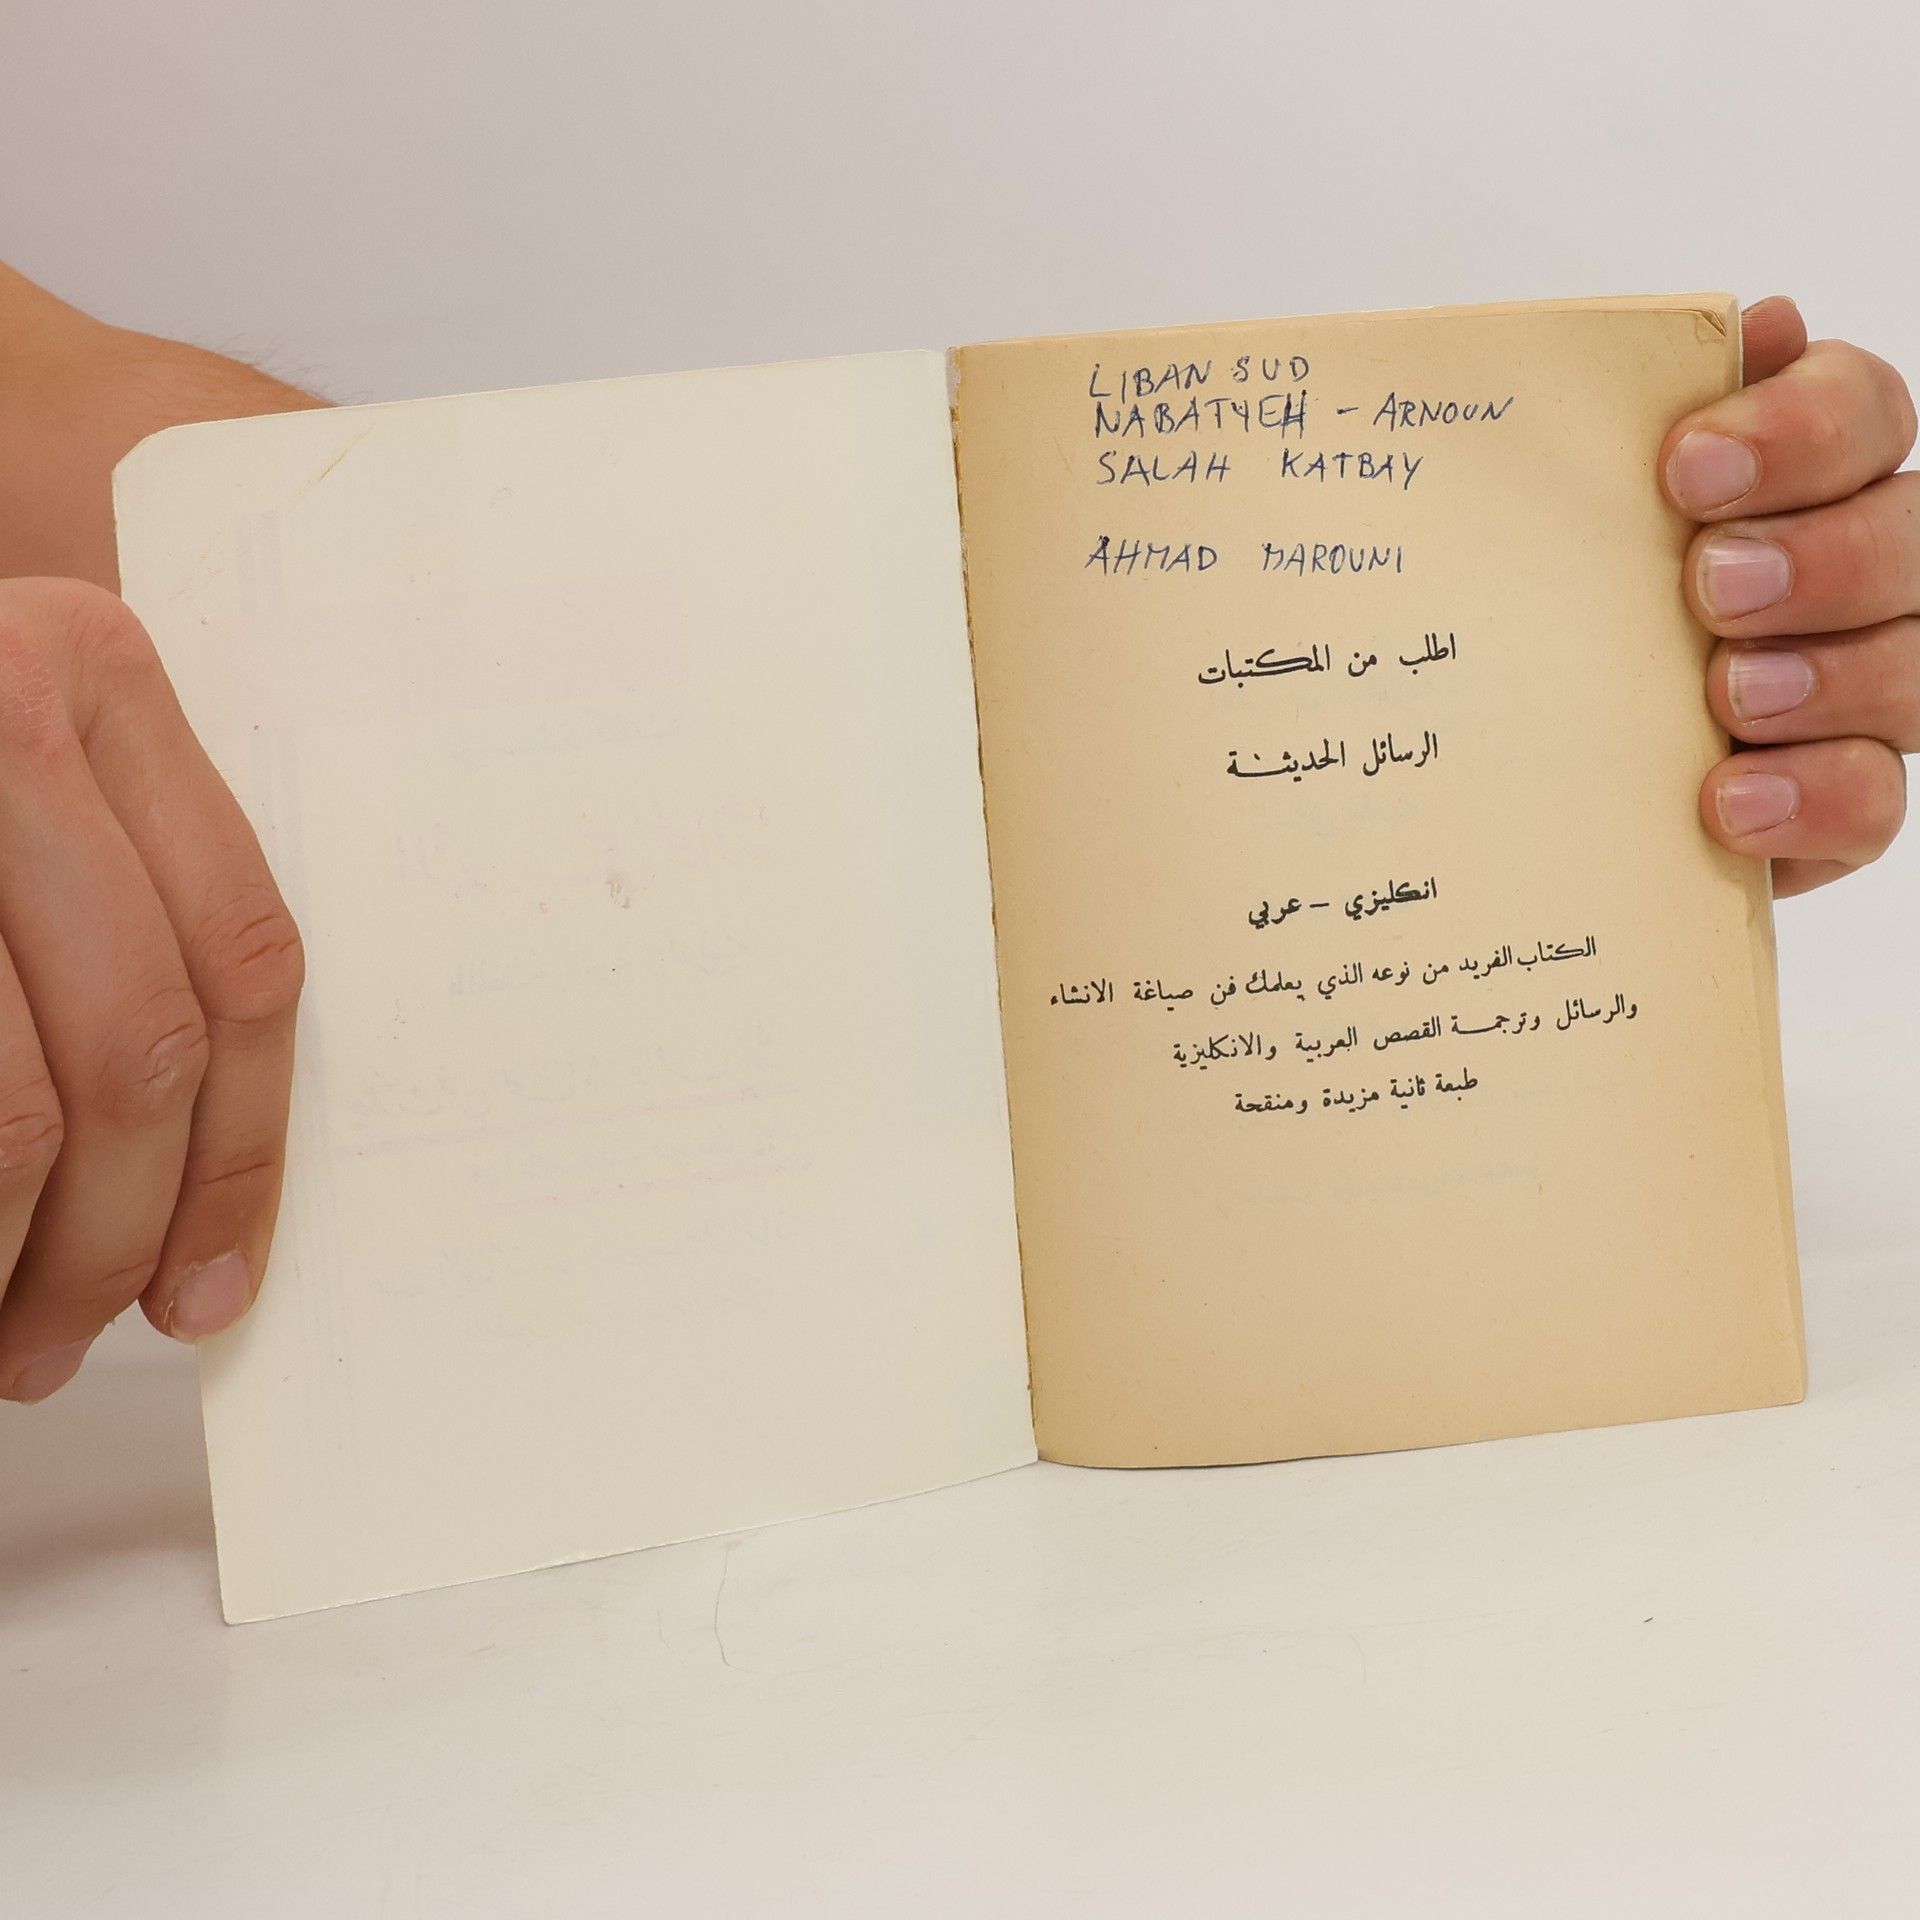 LIBAN SUD
NABATYEH - ARNOUN
SALAH KATBAY
AHMAD MAROUNI
اطلب من المكتبات
الرسائل الحديثة
انكليزي - عربي
الكتاب الفريد من نوعه الذي يعلمك فن صياغة الانشاء
والرسائل وترجمة القصص العربية والانكليزية
طبعة ثانية مزيدة ومنقحة